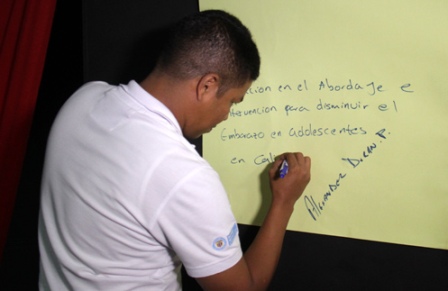 ción en el Abordaje e
ntervención para disminuir el
Embarazo en adolescentes
en Cal
Alexander Díaz P.